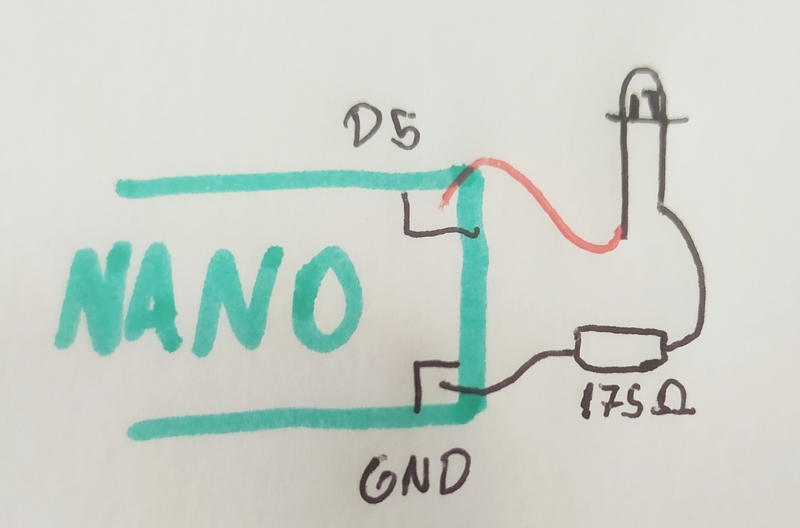 D5
NANO
175Ω
GND